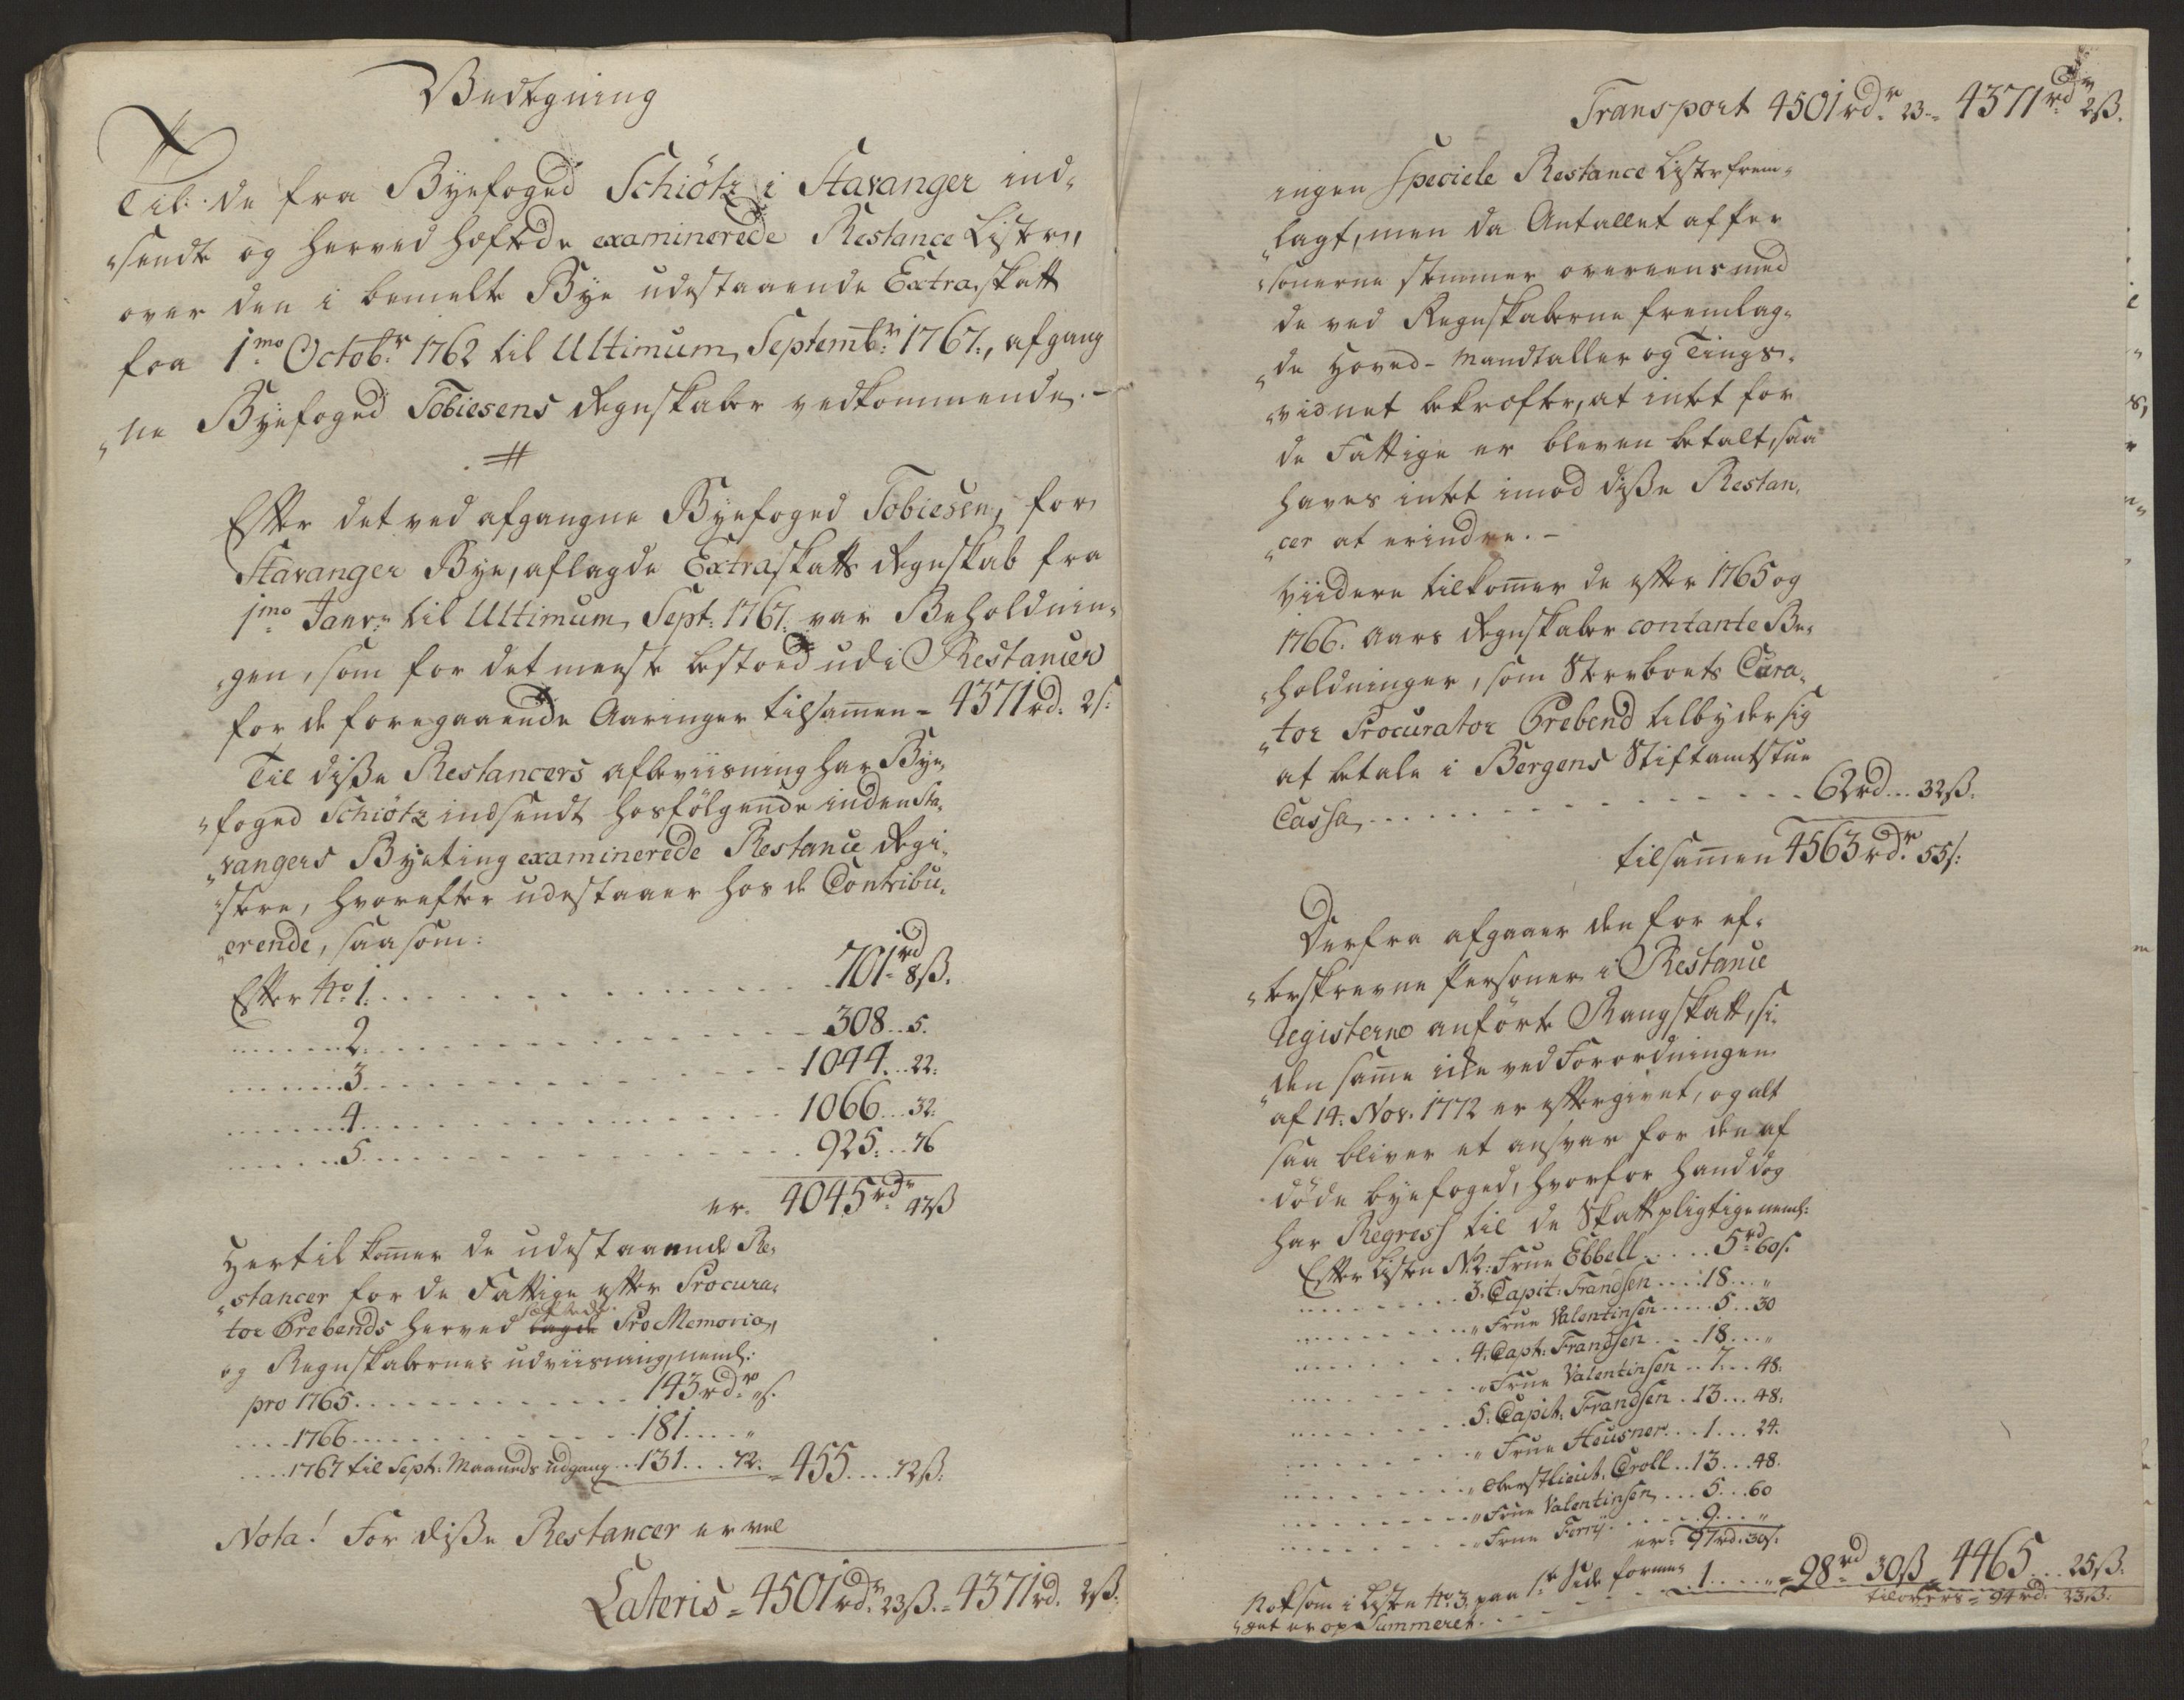 Betegning
Til de fra Byefoged Schiötz i Stavanger ind-
sendte og herved heftede examinerede Restance Lister,
over den i bemelte Bye udestaaende Extraskatt
fra 1mo Octobr: 1762 til Ultimum Septembr: 1767, afgang
ne Byefoged Tobiesens Regnskaber vedkommende. -
Efter det ved afgangne Byefoged Tobiesen, for
Stavanger Bye, aflagde Extraskatts Regnskab fra
1mo Janr: til Ultimum Sept: 1767. var Beholdnin-
gen, som for det meeste bestoed udi Restancer
for de foregaaende Aaringer tilsamen = 4371 rd: 2 s:
Til disse Restancers afbeviisning har Bye-
foged Schiötz indsendt hosfölgende inden Sta-
vangers Byeting examinerede Restance Regi-
stere, hvorefter udestaaer hos de Contribu-
erende, saasom:
Efter No 1. . . . 701 rd 8 ß.
2. . . . 308. . 5.
3. . . . 1044. . 22:
4. . . . 1066. . . 32.
5. . . . 925. . . 76
er. 4045 rdr 47 ß
Hertil komer de udestaaende Re-
stancer for de Fattige efter Procura-
tor Prebends herved heftede Pro Memoria,
og Regnskabernes udviisning, neml:
pro 1765. . . . 143 rdr „ s.
1766. . . . 181. . . „
1767 til Sept: Maaneds udgang . . 131. . . 72. = 455. . . . 72 ß.
Nota! For disse Restancer er vel
Lateris = 4501 rdr 23 ß. = 4371 rd. 2 ß.
Transport 4501 rdr. 23 = 4371 rdr 2 ß.
ingen Speciele Restance Lister frem-
lagt, men da Antallet af Per
sonerne stemmer overeens med
de ved Regnskaberne fremlag-
de Hoved-Mandtaller og Tings-
vidnet bekrefter, at intet for
de Fattige er bleven betalt, saa
haves intet imod disse Restan-
cer at erindre. -
Viidere tilkomer de efter 1765 og
1766. Aars Regnskaber contante Be-
holdninger, som Sterboets Cura-
tor Procurator Prebend tilbyder sig
at betale i Bergens Stiftamtstue
Cassa . . . . 62 rd. . . 32 ß.
tilsamen 4563 rdr. 55 s:
Derfra afgaaer den for ef-
terskrevne Personer i Restance
Registerne anförte Rangskatt, si-
den same icke ved Forordningen
af 14. Nov. 1772 er eftergivet, og alt
saa bliver et ansvar for den af
döde byefoged, hvorfor hand dog
har Regress til de Skattpligtige neml:
Efter Listen N. 2: Frue Ebbell . . . . 5 rd 60 s.
3. Capit: Frandsen . . . . 18. . . „
„ Frue Valentinsen . . . . 5. . 30
4. Capt: Frandsen . . . 18. . . „
„ Frue Valentinsen . . 7. . . 48.
5. Capit. Frandsen . 13. . . 48.
„ Frue Heusner . . . 1. . . 24.
„ Oberstlieut. Croll . . 13. . . 48.
„ Frue Valentinsen . . . 5. . . 60
„ Frue Ferry. . . . . 9. . . „
er = 97 rd. 30 s.
Nok som i Liste No 3, paa 1te Side formee
get er op Summeret . . . . 1. . . . „ = 98 rd 30 ß = 4465. . . 25 ß.
tilovers = 94 rd. 23 ß.